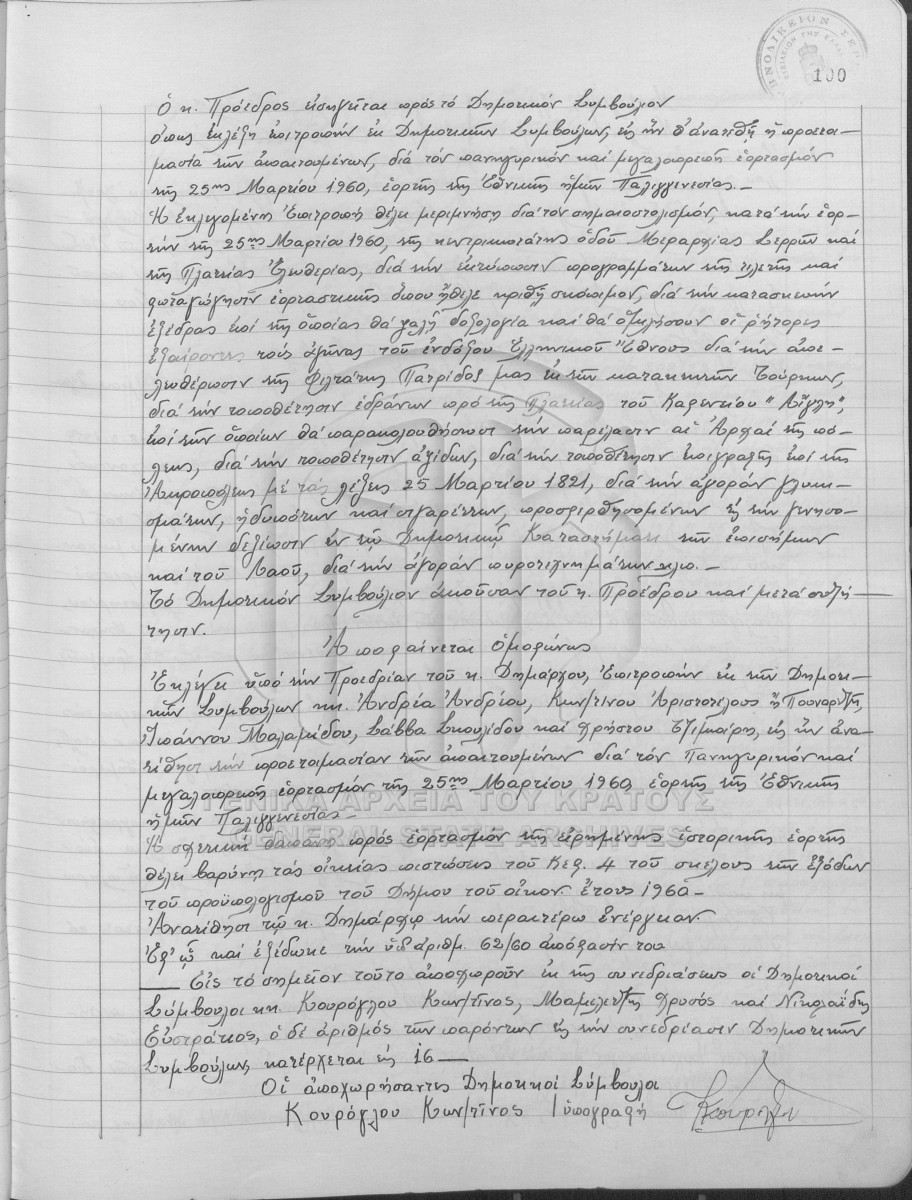 ΗΝΟΔΙΚΕΙΟΝ ΣΕΡ
100
Ὁ κ. Πρόεδρος εἰσηγεῖται πρὸς τὸ Δημοτικόν Συμβούλιον
ὅπως ἐκλέξῃ ἐπιτροπήν ἐκ Δημοτικῶν Συμβούλων, εἰς ἥν θ' ἀνατεθῇ ἡ προετοι-
μασία τῶν ἀπαιτουμένων, διά τόν πανηγυρικόν καί μεγαλοπρεπῆ ἑορτασμόν
τῆς 25ης Μαρτίου 1960, ἑορτῆς τῆς Ἐθνικῆς ἡμῶν Παλιγγενεσίας.-
Ἡ ἐκλεγομένη Ἐπιτροπή θέλει μεριμνήση διά τόν σημαιοστολισμόν, κατά τήν ἑορ-
τήν τῆς 25ης Μαρτίου 1960, τῆς κεντρικωτάτης ὁδοῦ Μεραρχίας Σερρῶν καί
τῆς Πλατείας Ἐλευθερίας, διά τήν ἐκτύπωσιν προγραμμάτων τῆς τελετῆς καί
φωταγώγησιν ἑορταστικῆς ὅπου ἤθελε κριθῆ σκόπιμον, διά τήν κατασκευήν
ἐξέδρας ἐπί τῆς ὁποίας θά ψαλῆ δοξολογία καί θά ὁμιλήσουν οἱ ρήτορες
ἐξαίροντες τούς ἀγῶνας τοῦ ἐνδόξου Ἑλληνικοῦ Ἔθνους διά τήν ἀπε-
λευθέρωσιν τῆς Φιλτάτης Πατρίδος μας ἐκ τῶν κατακτητῶν Τούρκων,
διά τήν τοποθέτησιν ἑδράνων πρό τῆς Πλατείας τοῦ Καφενείου "Αἴγλη",
ἐπί τῶν ὁποίων θά παρακολουθήσωσι τήν παρέλασιν αἱ Ἀρχαί τῆς πό-
λεως, διά τήν τοποθέτησιν ἁψίδων, διά τήν τοποθέτησιν ἐπιγραφῆς ἐπί τῆς
Ἀκροπόλεως μέ τάς λέξεις 25 Μαρτίου 1821, διά τήν ἀγοράν γλυκι-
σμάτων, ἡδυπότων καί σιγαρέττων, προσφερθησομένων εἰς τήν γενησο-
μένην δεξίωσιν ἐν τῷ Δημοτικῷ Καταστήματι τῶν ἐπισήμων
καί τοῦ Λαοῦ, διά τήν ἀγοράν πυροτεχνημάτων κλπ.-
Τό Δημοτικόν Συμβούλιον ἀκοῦσαν τοῦ κ. Προέδρου καί μετά συζή-
τησιν.
Ἀποφαίνεται ὁμοφώνως
Ἐκλέγει ὑπό τήν Προεδρίαν τοῦ κ. Δημάρχου, Ἐπιτροπήν ἐκ τῶν Δημοτι-
κῶν Συμβούλων κκ. Ἀνδρέα Ἀνδρέου, Κων/τίνου Ἀριστοτέλους ἤ Πουναρτζῆ,
Ἰωάννου Μαλαμίδου, Σάββα Σκουλίδου καί Χρήστου Τζιμαίρη, εἰς ἥν ἀνα-
τίθησι τήν προετοιμασίαν τῶν ἀπαιτουμένων διά τόν Πανηγυρικόν καί
μεγαλοπρεπῆ ἑορτασμόν τῆς 25ης Μαρτίου 1960, ἑορτῆς τῆς Ἐθνικῆς
ἡμῶν Παλιγγενεσίας.-
Ἡ σχετική δαπάνη πρός ἑορτασμόν τῆς εἰρημένης ἱστορικῆς ἑορτῆς
θέλει βαρύνη τάς οἰκείας πιστώσεις τοῦ Κεφ. 4 τοῦ σκέλους τῶν ἐξόδων
τοῦ προϋπολογισμοῦ τοῦ Δήμου τοῦ οἰκον. ἔτους 1960-
Ἀνατίθησι τῷ κ. Δημάρχῳ τήν περαιτέρω ἐνέργειαν.
Ἐφ' ᾧ καί ἐξέδωκε τήν ὑπ' ἀριθμ. 62/60 ἀπόφασίν του
Εἰς τό σημεῖον τοῦτο ἀποχωροῦν ἐκ τῆς συνεδριάσεως οἱ Δημοτικοί
Σύμβουλοι κκ. Κουρόγλου Κων/τῖνος, Μαμελετζῆς Χρυσός καί Νικολαΐδης
Εὐστράτιος, ὁ δέ ἀριθμός τῶν παρόντων εἰς τήν συνεδρίασιν Δημοτικῶν
Συμβούλων κατέρχεται εἰς 16
Οἱ ἀποχωρήσαντες Δημοτικοί Σύμβουλοι
Κουρόγλου Κων/τῖνος (ὑπογραφή
ΓΕΝΙΚΑ ΑΡΧΕΙΑ ΤΟΥ ΚΡΑΤΟΥΣ
GENERAL STATE ARCHIVES